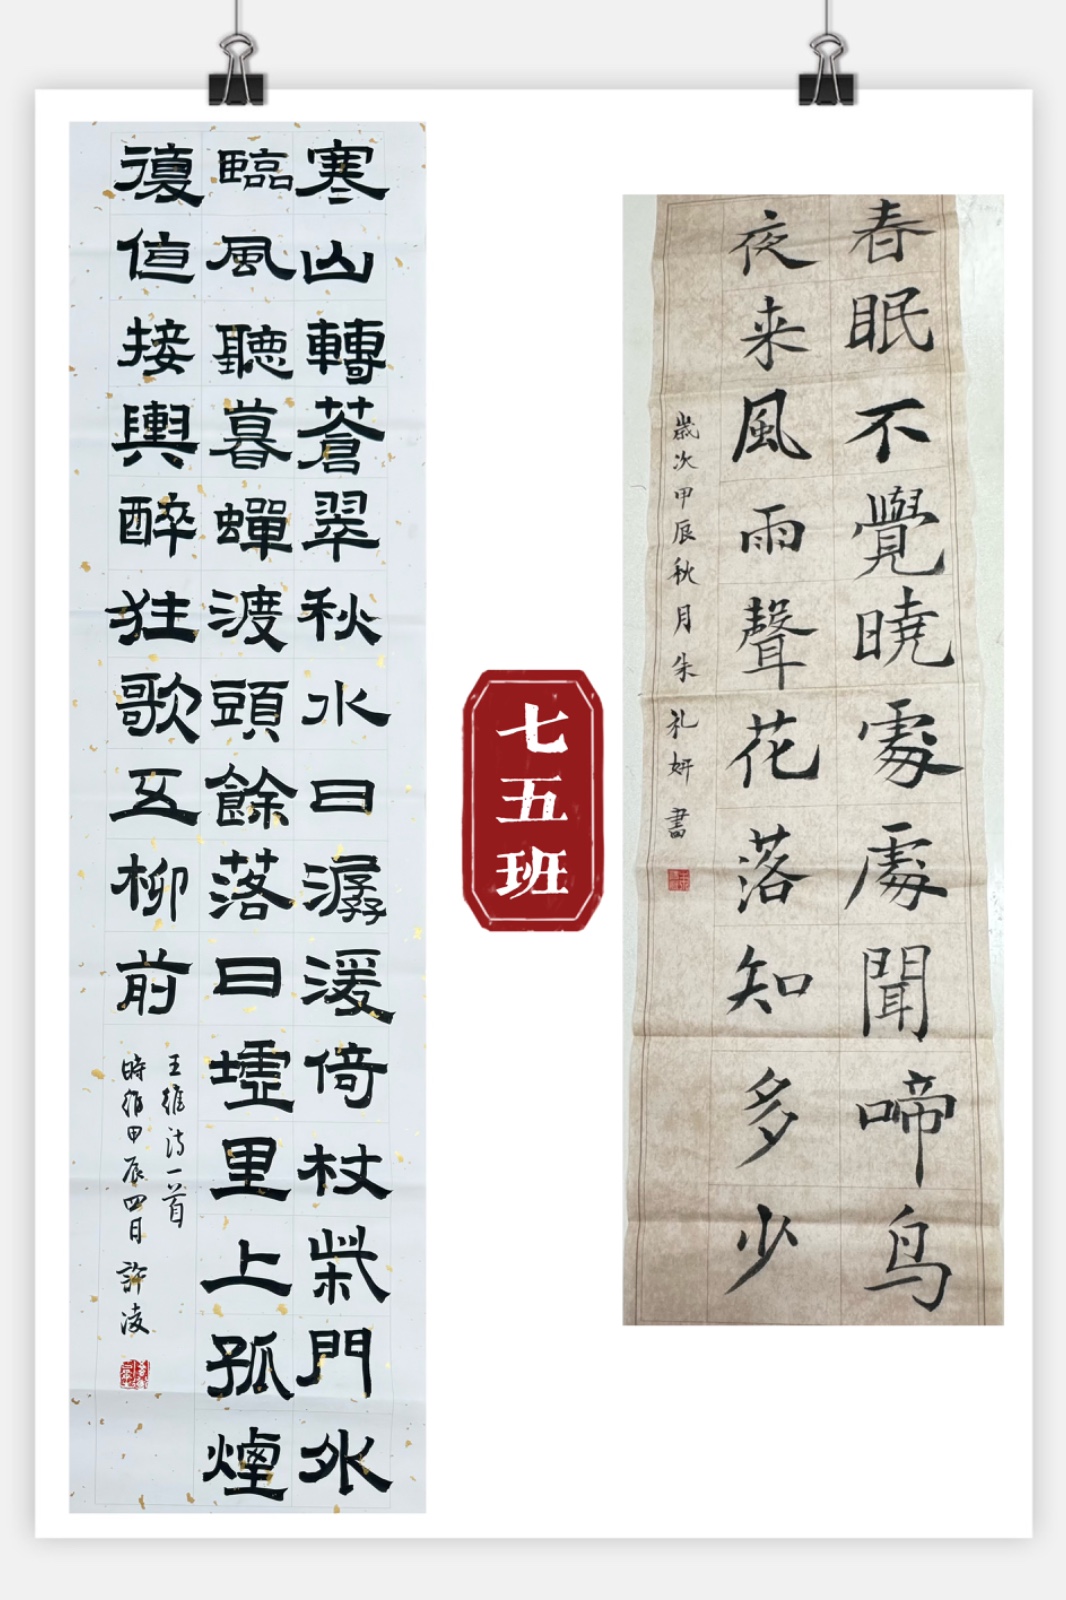 寒山轉蒼翠秋水日潺湲倚杖柴門外
臨風聽暮蟬渡頭餘落日墟里上孤煙
復值接輿醉狂歌五柳前
王維诗一首
時維甲辰四月許凌
七五班
春眠不覺曉處處聞啼鸟
夜来風雨聲花落知多少
歲次甲辰秋月朱礼妍書